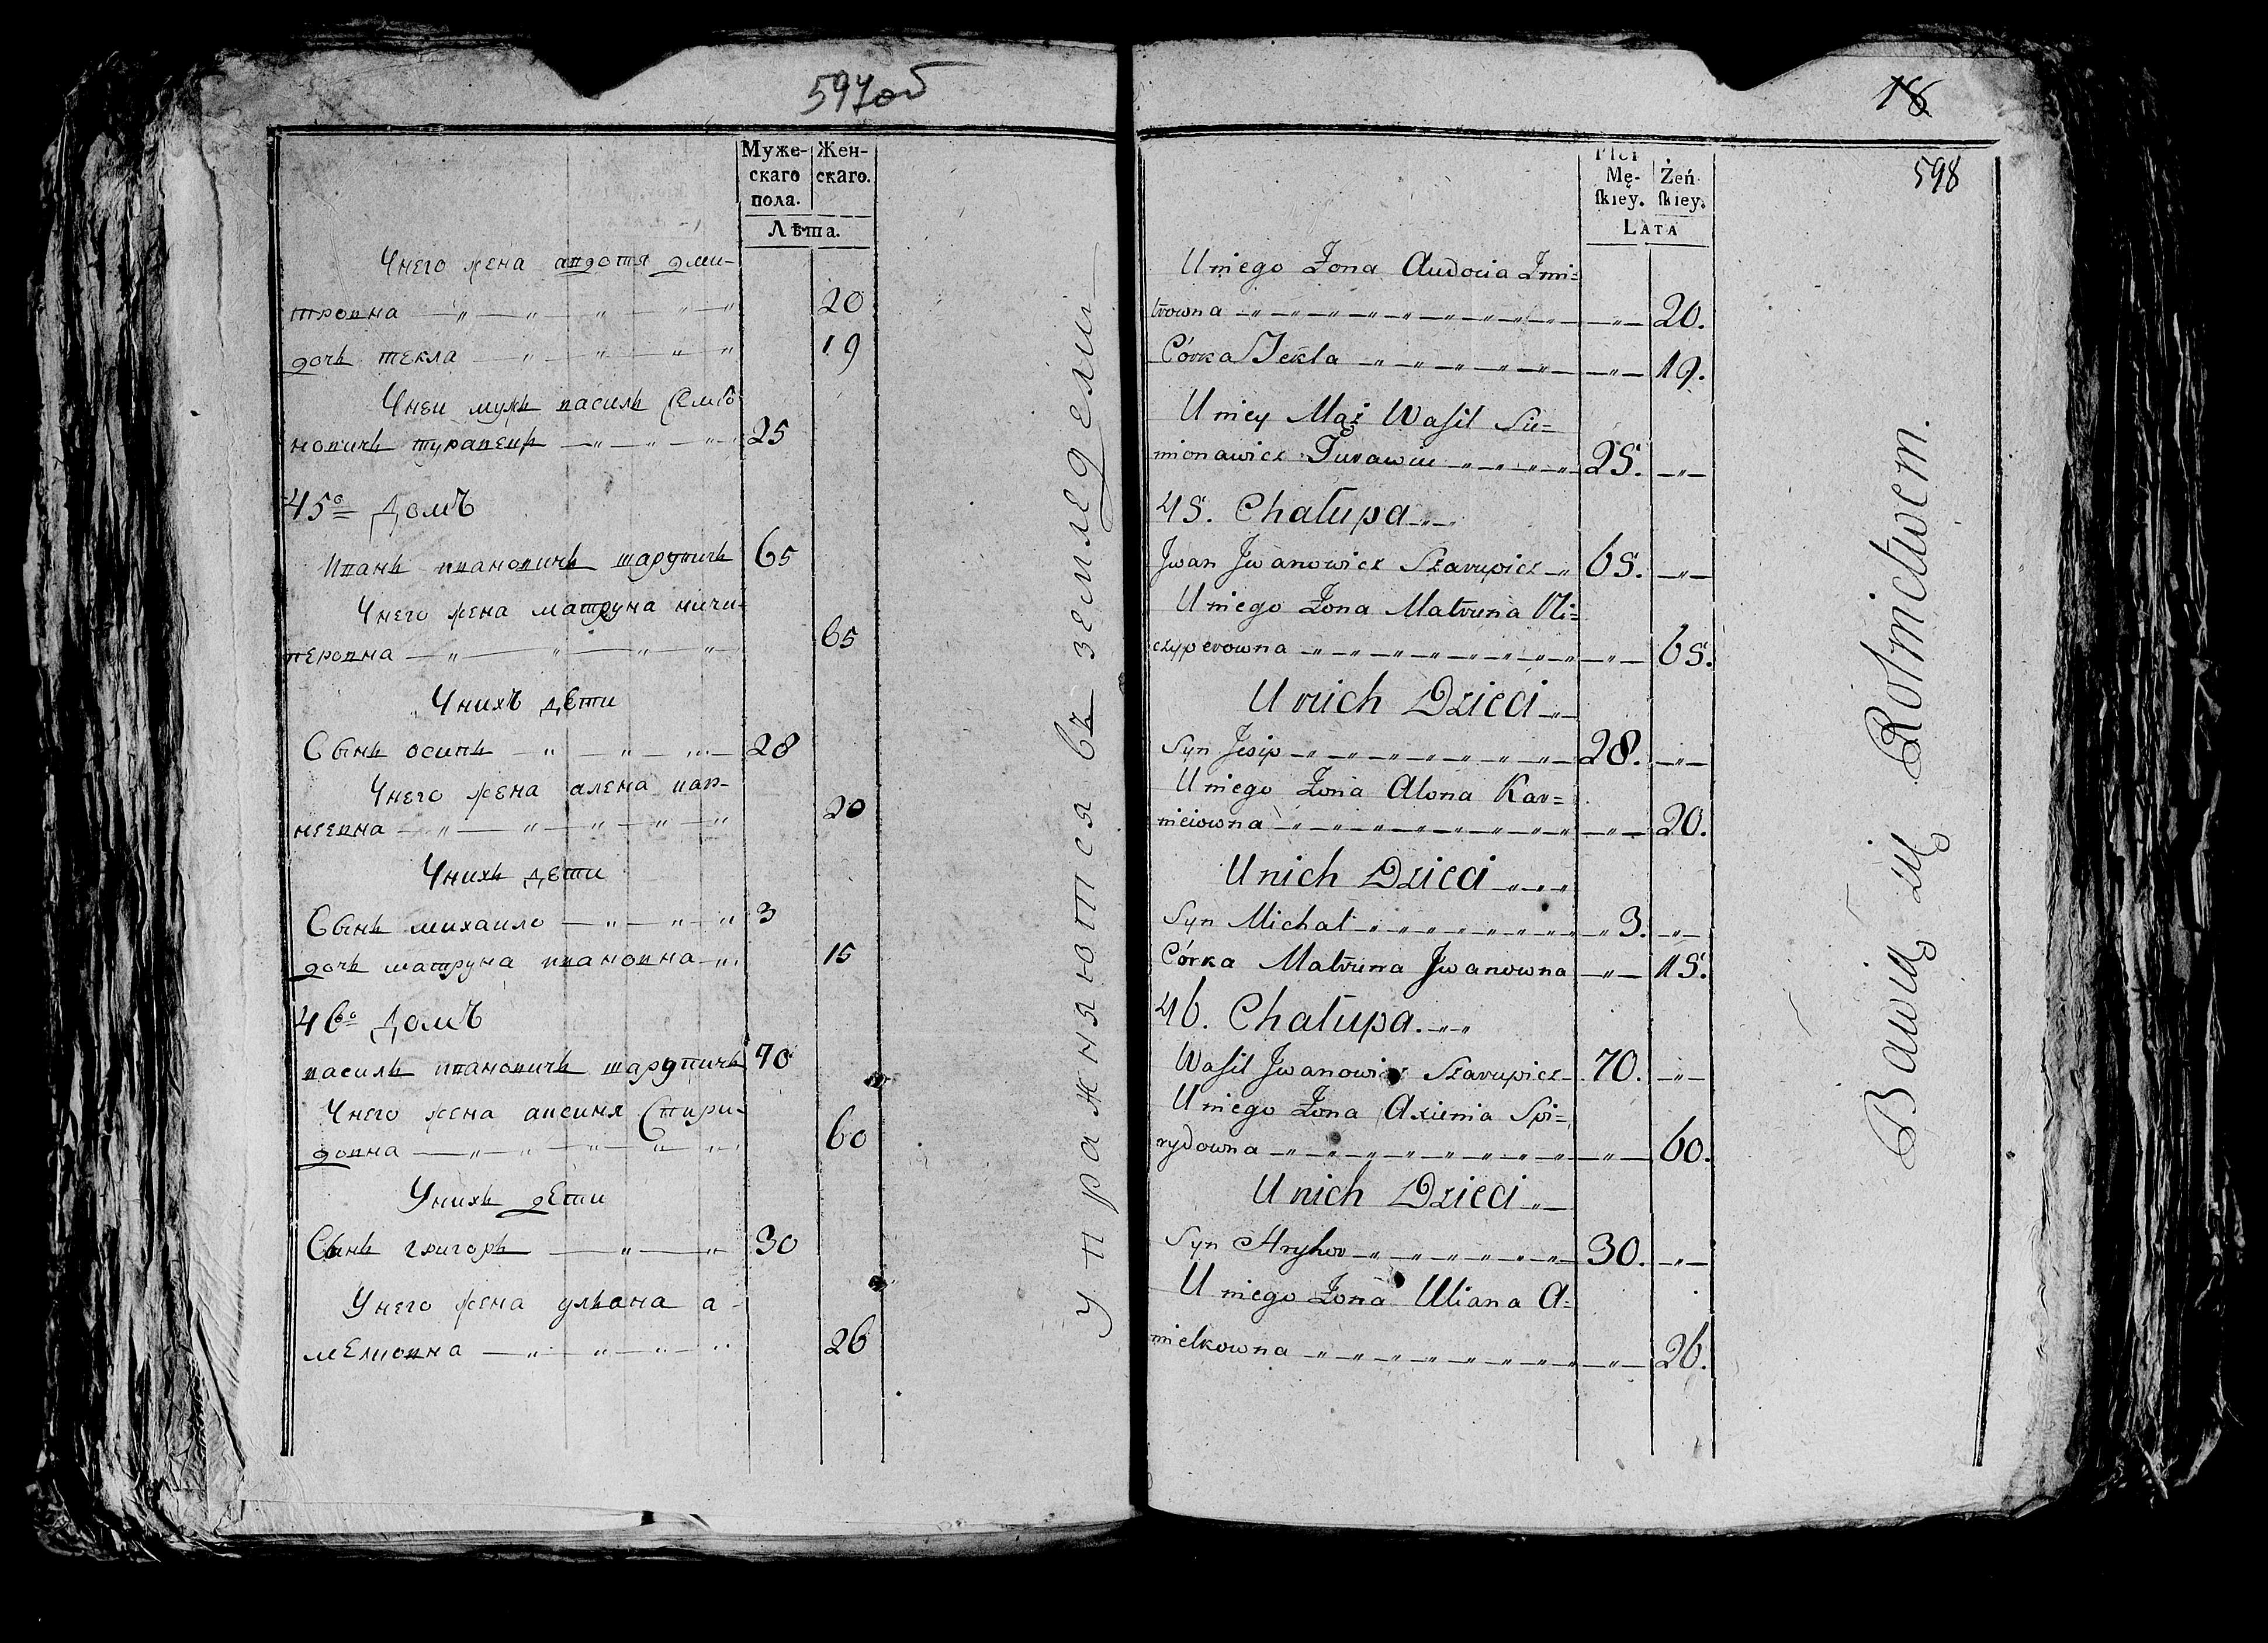 597об
Муже-
скаго
пола.
Жен-
скаго.
Лѣта.
Унего жена авдотя дми-
тровна 20
дочь текла 19
Унеи мужь василь Семіо
новичь туравець 25
45о Домъ
Иванъ ивановичь шарупичь 65
Унего жена матруна ничи-
перовна 65
Унихъ дети
Сынъ осипъ 28
Унего жена алена кар-
неевна 20
Унихъ дети
Сынъ михаило 3
дочь матруна ивановна 15
46о Домъ
василь ивановичь шарупичь 70
Унего жена аксиня Спири-
довна 60
Унихъ дети
Сынъ григоръ 30
Унего жена ульяна а-
мелковна 26
упражняются въ земледелии
18
598
Płci
Mę-
skiey.
Żeń-
skiey.
LATA
U niego Żona Audocia Zmi=
trowna „ 20.
Córka Tekla „ 19.
U niey Mąż Wasil Sie=
mionawicz Turawiec 25. „
45. Chałupa
Jwan Jwanowicz Szarupicz 65. „
U niego Żona Matruna Ni=
czyperowna „ 65.
U nich Dzieci
Syn Jesip 28. „
U niego Żona Alona Kar=
nieiowna „ 20.
U nich Dzieci
Syn Michał „ 3. „
Córka Matruna Jwanowna „ 15.
46. Chałupa.
Wasil Jwanowicz Szarupicz 70. „
U niego Żona Axienia Spi=
rydowna „ 60.
U nich Dzieci
Syn Hryhor 30. „
U niego Żona Uliana A=
mielkowna „ 26.
Bawią się Rolnictwem.